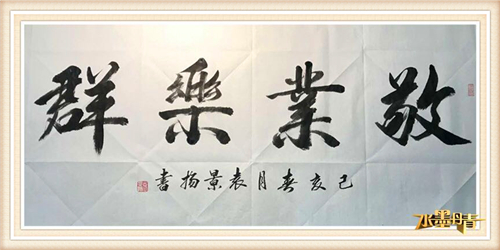 敬業樂群
己亥春月袁景揚書
水墨丹青